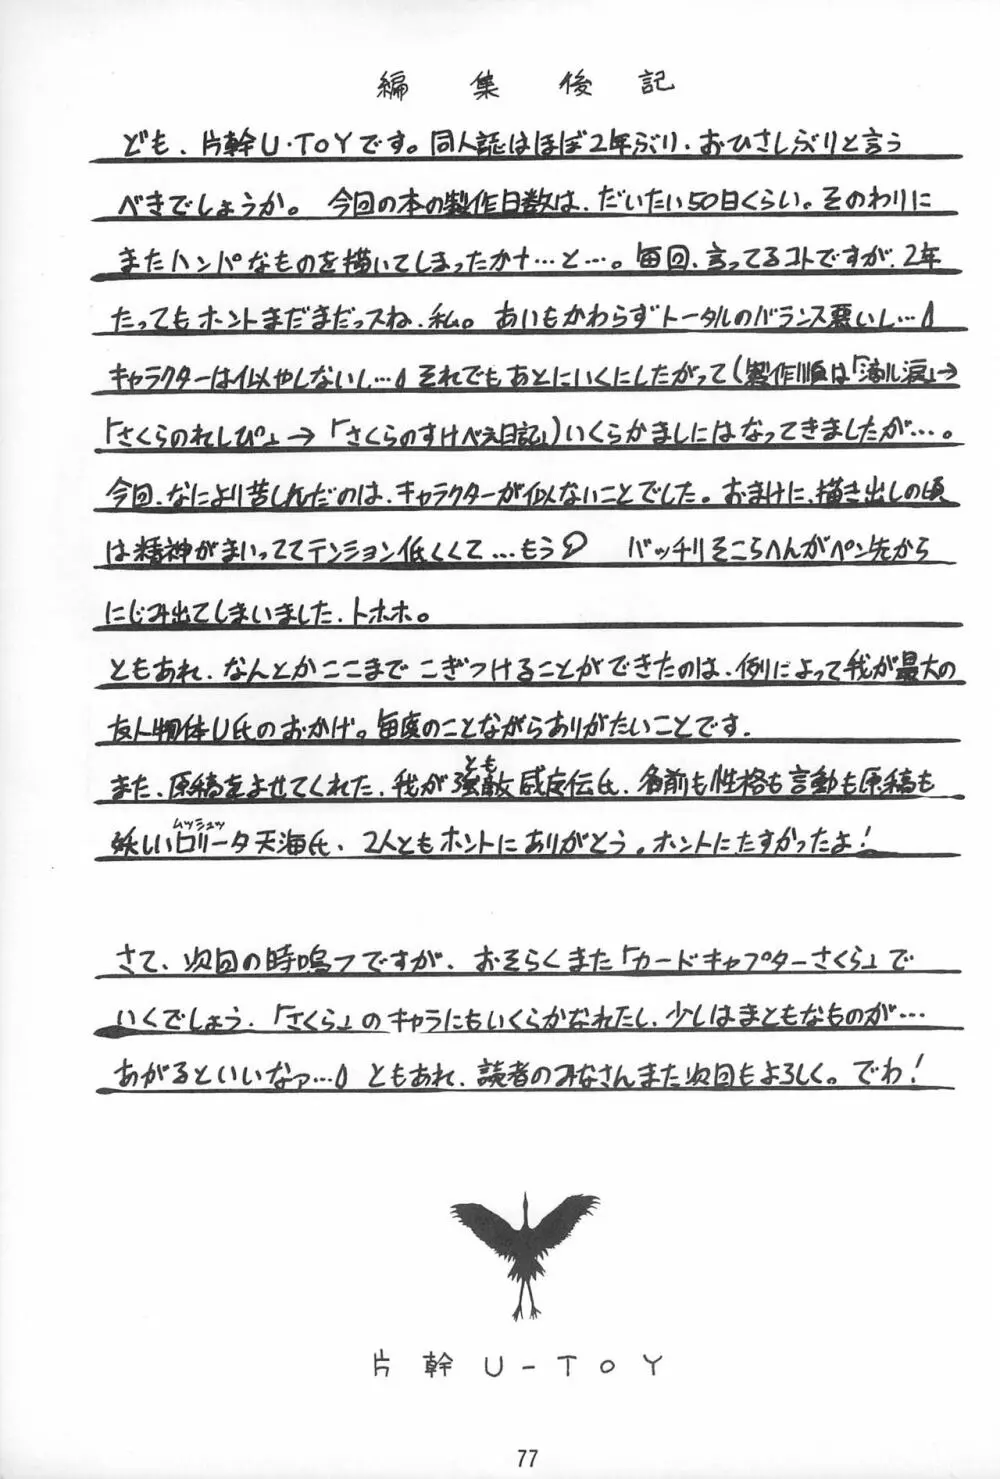 編集後記
ども、片幹U・TOYです。同人誌はほぼ2年ぶり、おひさしぶりと言う
べきでしょうか。 今回の本の製作日数は、だいたい50日くらい。そのわりに
またハンパなものを描いてしまったかナ…と…。毎回、言ってるコトですが、2年
たってもホントまだまだっスね、私。 あいもかわらずトータルのバランス悪いし…
キャラクターは似やしないし… それでもあとにいくにしたがって(製作順は「涙」→
「さくらのれしぴ」→「さくらのすけべえ日記」)いくらかましにはなってきましたが…。
今回、なにより苦しんだのは、キャラクターが似ないことでした。おまけに、描き出しの頃
は精神がまいっててテンション低くくて…もう バッチリそこらへんがペン先から
にじみ出てしまいました、トホホ。
ともあれ、なんとかここまでこぎつけることができたのは、例によって我が最大の
友人物体U氏のおかげ。毎度のことながらありがたいことです.
また、原稿をよせてくれた、我が強敵(とも)感応伝氏、名前も性格も言動も原稿も
妖しいロリータ(ムッシュッ)天海氏、2人ともホントにありがとう。ホントにたすかったよ!
さて、次回の時鳴フですが、おそらくまた「カードキャプターさくら」で
いくでしょう、「さくら」のキャラにもいくらかなれたし、少しはまともなものが…
あがるといいなァ… ともあれ、読者のみなさんまた次回もよろしく。でわ!
片幹U-TOY
77